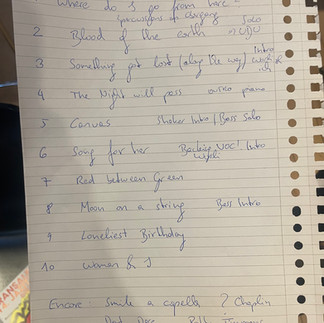 Where do I go from here -
Solo
2 Blood of the earth
Intro
3 Something got lost (along the way)
4 The Night will pass piano
5 Canvas Shaker Intro / Bass Solo
6 Song for her Backing Voc! Intro
7 Red between Green
8 Moon on a string Bass Intro
9 Loneliest Birthday
10 Woman & I
Encore: Smile a capella ? Chaplin